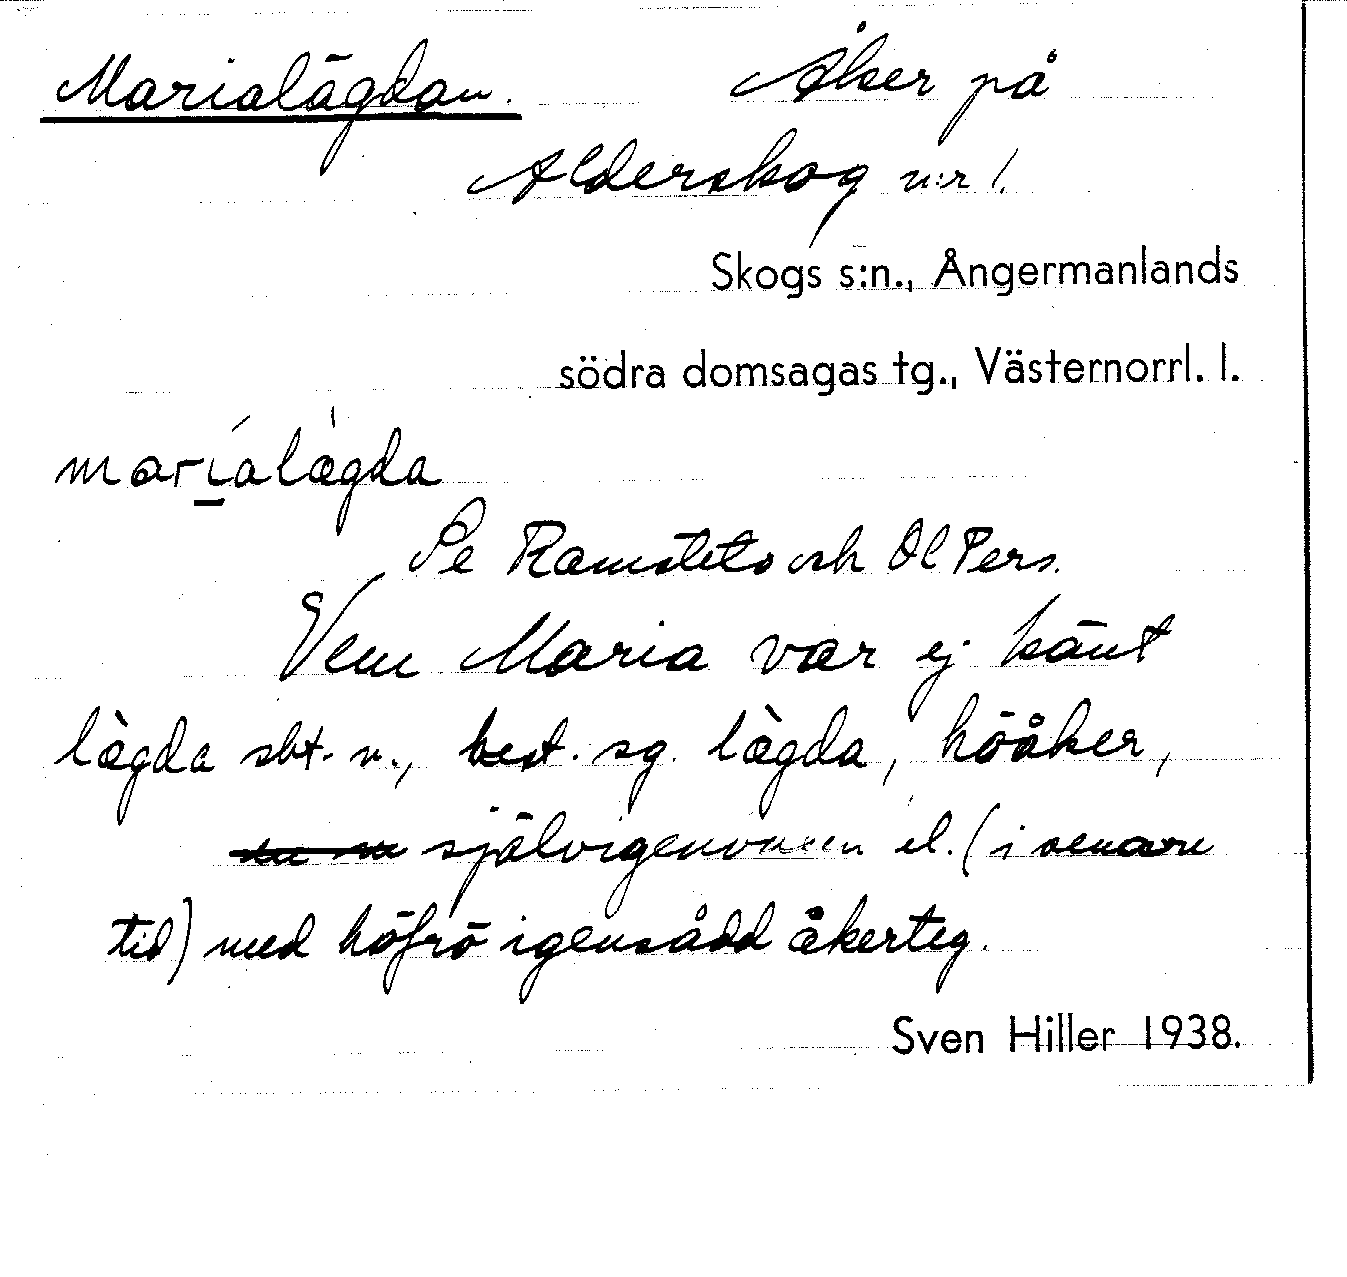 Marialägdan. Åker på
Alderskog n:r 1.
Skogs s:n., Ångermanlands
södra domsagas tg., Västernorrl. l.
maríalægda
Se Ramsteto och Ol Pers.
Vem Maria var ej känt
lægda sbt. n., best. sg. lægda, höåker,
självigenvuxen el. (i senare
tid) med höfrö igensådd åkerteg.
Sven Hiller 1938.